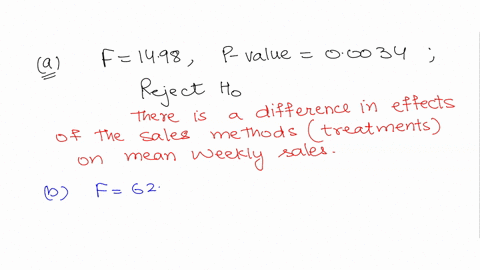 (a) F=14.98, P-value = 0.0034 ;
Reject H0
There is a difference in effects
of the sales methods (treatments)
on mean weekly sales.
(b) F= 62.